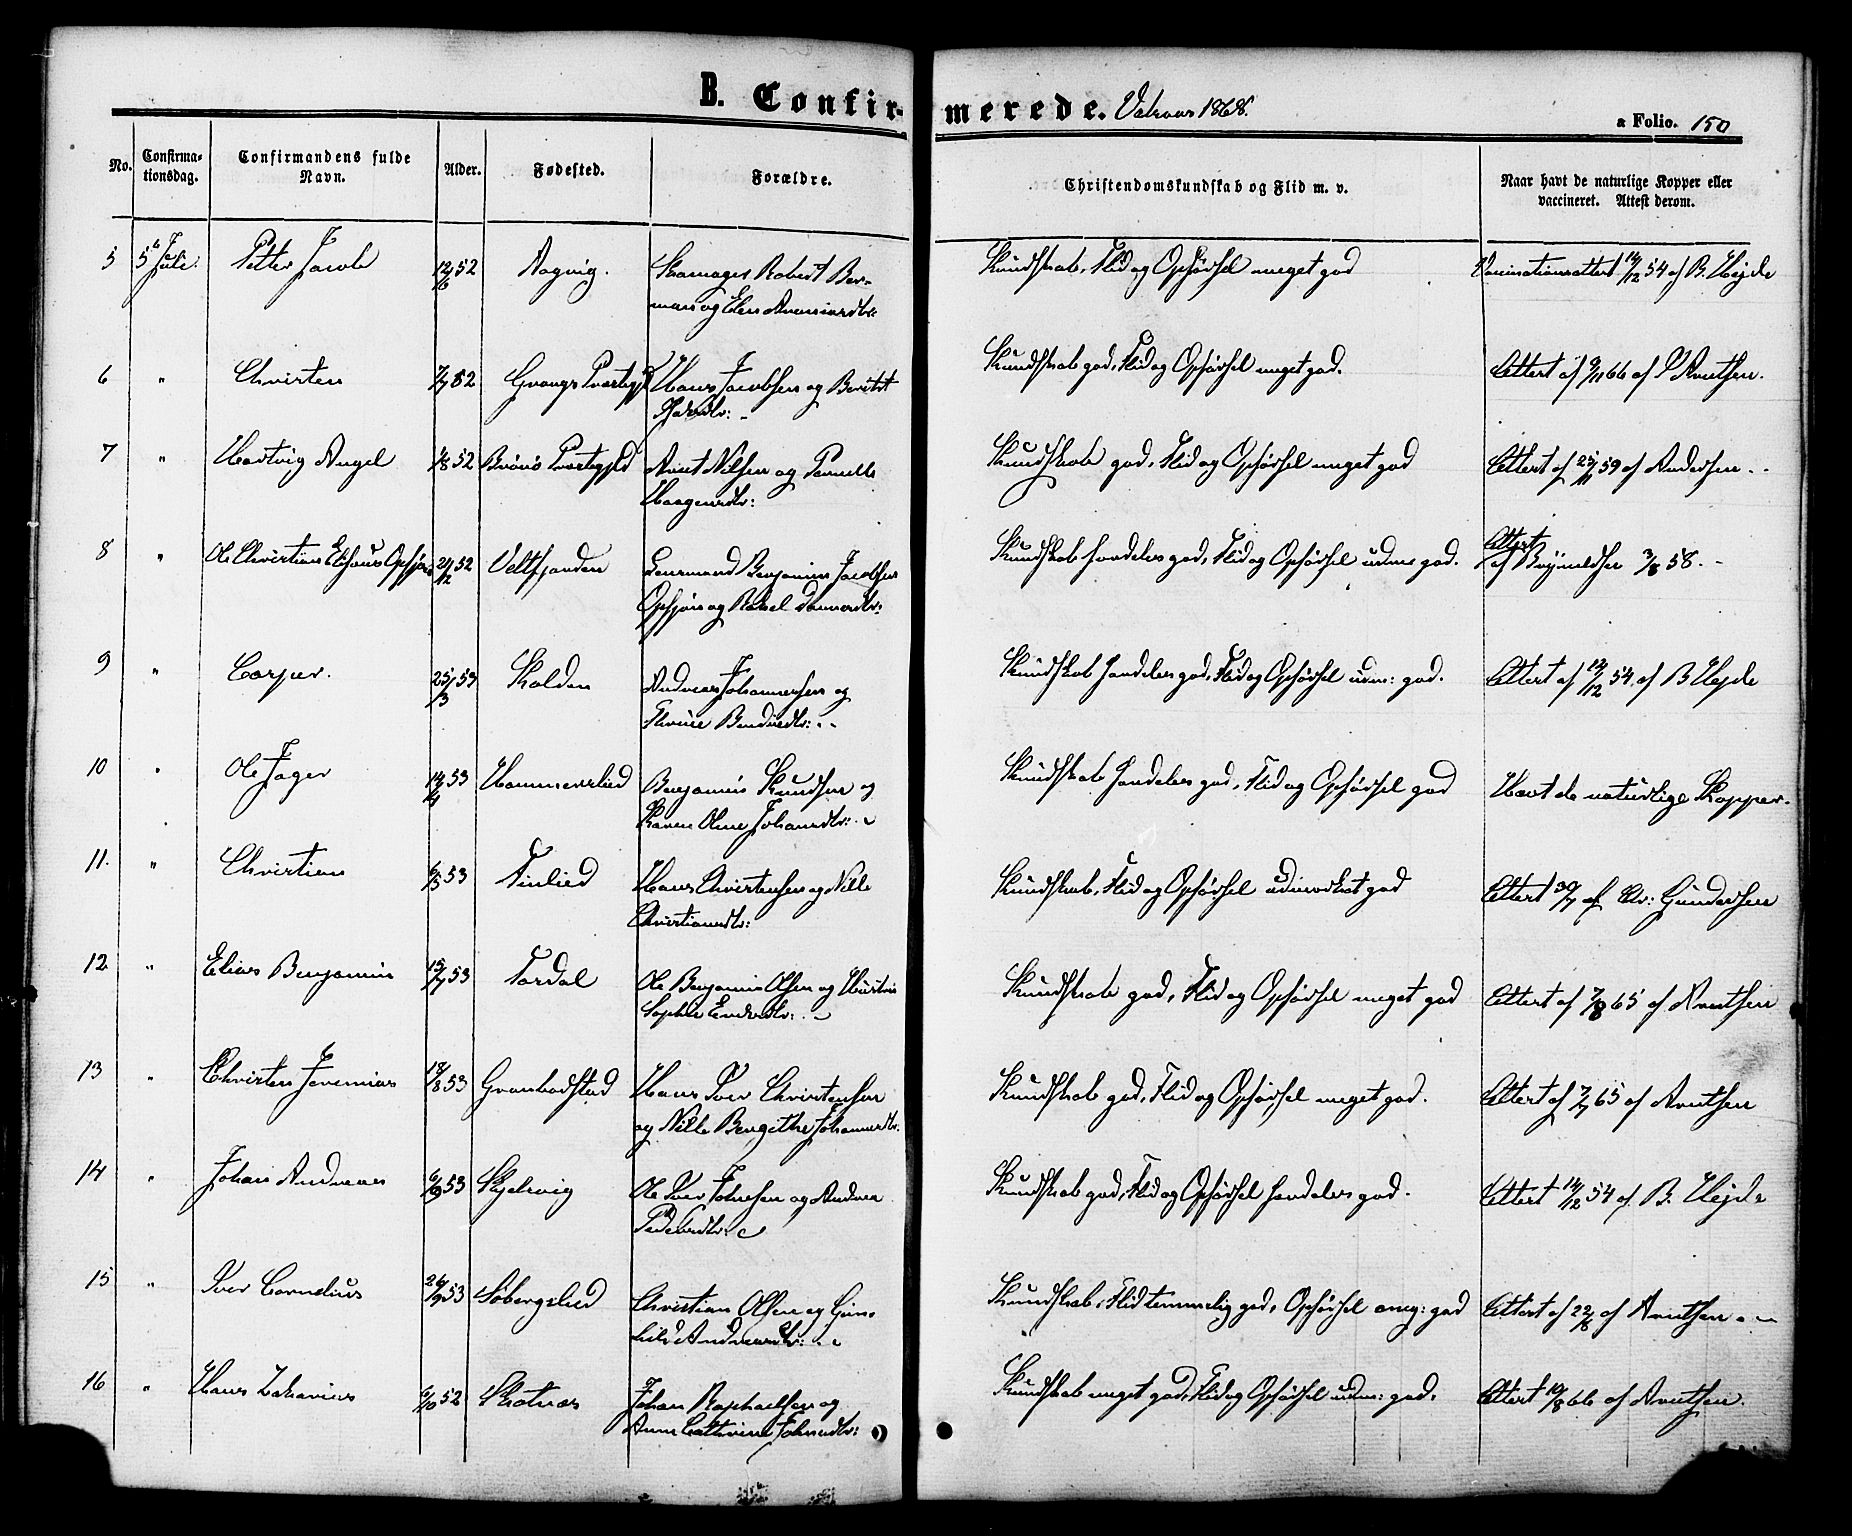 B. Confir-
merede. 1868.
a Folio. 150
No.
Confirma-
tionsdag.
Confirmandens fulde
Navn.
Alder.
Fødested.
Forældre.
Christendomskundskab og Flid m. v.
Naar havt de naturlige Kopper eller
vaccineret. Attest derom.
5 5 Juli. Petter Jacob 12/6 52 Aagvig. Robert Ber-
man og Elen
Kundskab, Flid og Opførsel meget god
Vaccinationsattest 14/12 54 af B. Hejde
6 " Christen 7/7 52 Grongs Præstegjd Hans Jacobsen og Beritet
Kundskab god, Flid og Opførsel meget god.
Attest af 9/11 66 af Arntsen.
7 " Hartvig Angel 1/8 52 Brönö Præstegjeld Arnt Nilsen og Pernille
Haagensdtr:
Kundskab god, Flid og Opførsel meget god
Attest af 25/11 59 af Andersen
8 " Ole Christian 21/12 52 Velfjorden Benjamin Jacobsen
og Rakel
Kundskab særdeles god, Flid og Opførsel udm. god.
Attest
af 3/8 58.
9 " Casper. 25/3 53 Skolden Andreas Johannesen og
Kundskab særdeles god, Flid og Opførsel udm: god.
Attest af 14/12 54 af B Hejde
10 " Ole Jager 14/4 53 Hammerslied Benjamin Knudsen og
Karen Oline Johansdtr:
Kundskab særdeles god, Flid og Opførsel god
Havt de naturlige Kopper.
11. " Christian 6/5 53 Hans Christensen og Nille
Christiansdtr:
Kundskab, Flid og Opførsel udmærket god
Attest 30/7 af Gundersen
12 " Elias Benjamin 15/7 53 Tosdal Ole Benjamin Olsen og
Sophie
Kundskab god, Flid og Opførsel meget god
Attest af 7/8 65 af Arntsen
13 " Christen Jeremias 18/8 53 Granbodstad Hans Iver Christensen
og Nille Bergithe Johannesdtr.
Kundskab god, Flid og Opførsel meget god.
Attest af 7/7 65 af Arntsen
14 " Johan Andreas 6/9 53 Skjelsvig Ole Iver Johnsen og Andrea
Pedersdtr:
Kundskab god, Flid og Opførsel særdeles god.
Attest 14/12 54 af B. Hejde
15 " Iver Cornelius 26/9 53 Søbergslied Christian Olsen og Gun-
hild Andreasdtr:
Kundskab, Flid temmelig god, Opførsel meg: god
Attest af 22/8 af Arntsen
16 " Hans Zakarias 6/10 52 Skotnæs Johan Raphaelsen og
Anne Cathrine Johnsdtr:
Kundskab meget god, Flid og Opførsel udm: god.
Attest 19/8 66 af Arntsen.